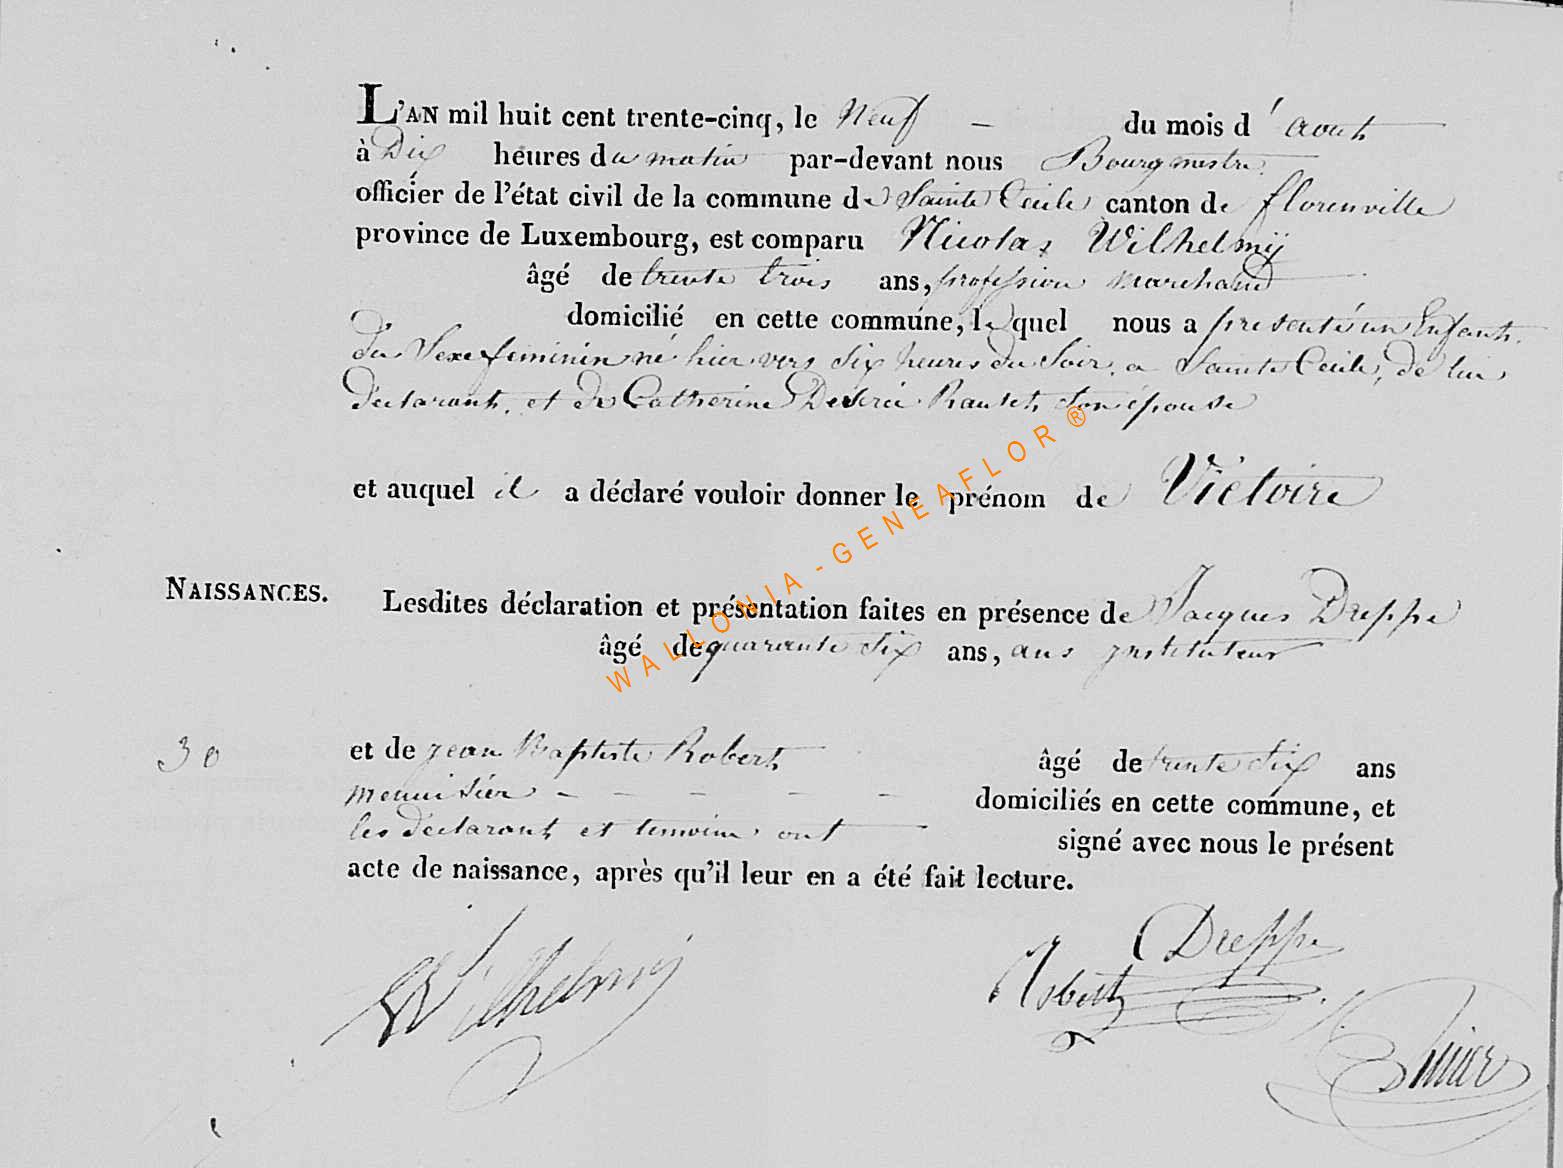 L'AN mil huit cent trente-cinq, le Neuf — du mois d' aout
à Dix heures du matin par-devant nous Bourgmestre
officier de l'état civil de la commune de Sainte Cécile canton de florenville
province de Luxembourg, est comparu Nicolas Wilhelmÿ
âgé de trente trois ans, profession marchand
domicilié en cette commune, lequel nous a presenté un Enfant
du Sexe feminin né hier vers six heures du Soir, a Sainte Cecile, de lui
déclarant, et de Catherine Desirée son épouse
et auquel il a déclaré vouloir donner le prénom de Victoire
NAISSANCES.
Lesdites déclaration et présentation faites en présence de Jacques Dreppe
âgé de quarante six ans, ans instituteur
30
et de jean Baptiste Robert âgé de trente six ans
menuisier — — — — — domiciliés en cette commune, et
les déclarant et temoins ont signé avec nous le présent
acte de naissance, après qu'il leur en a été fait lecture.
Wilhelmÿ
Dreppe
Robert
WALLONIA - GENEAFLOR ®